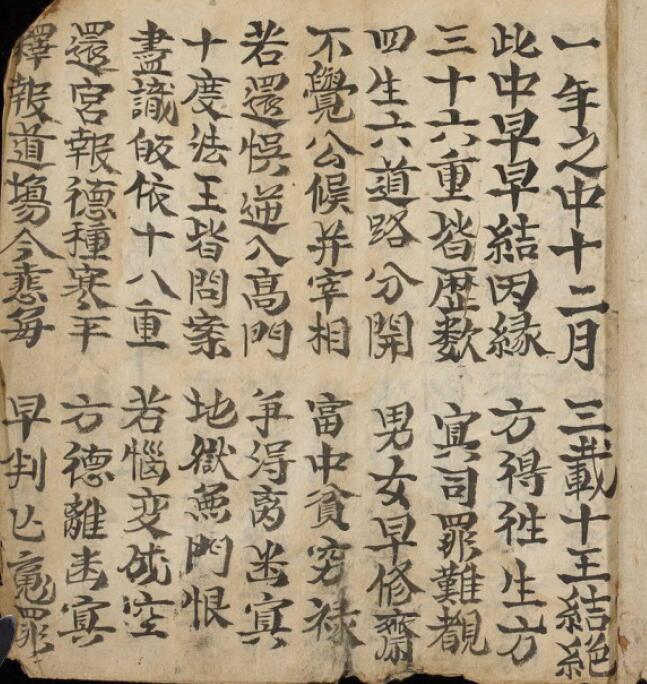 一年之中十二月　三載十王結絕
此中早早結因縁　方得往生方
三十六重皆歷數　㝠司罪難覩
四生六道路分開　男女早修齋
不覺公候并宰相　富中貧窮禄
若還悞逆入髙門　爭得离出㝠
十度法王皆問案　地獄無門恨
盡識皈依十八重　若惱変成空
還宮報德種寒平　方德離出㝠
釋報道塲今 每　早判亡䰟罪